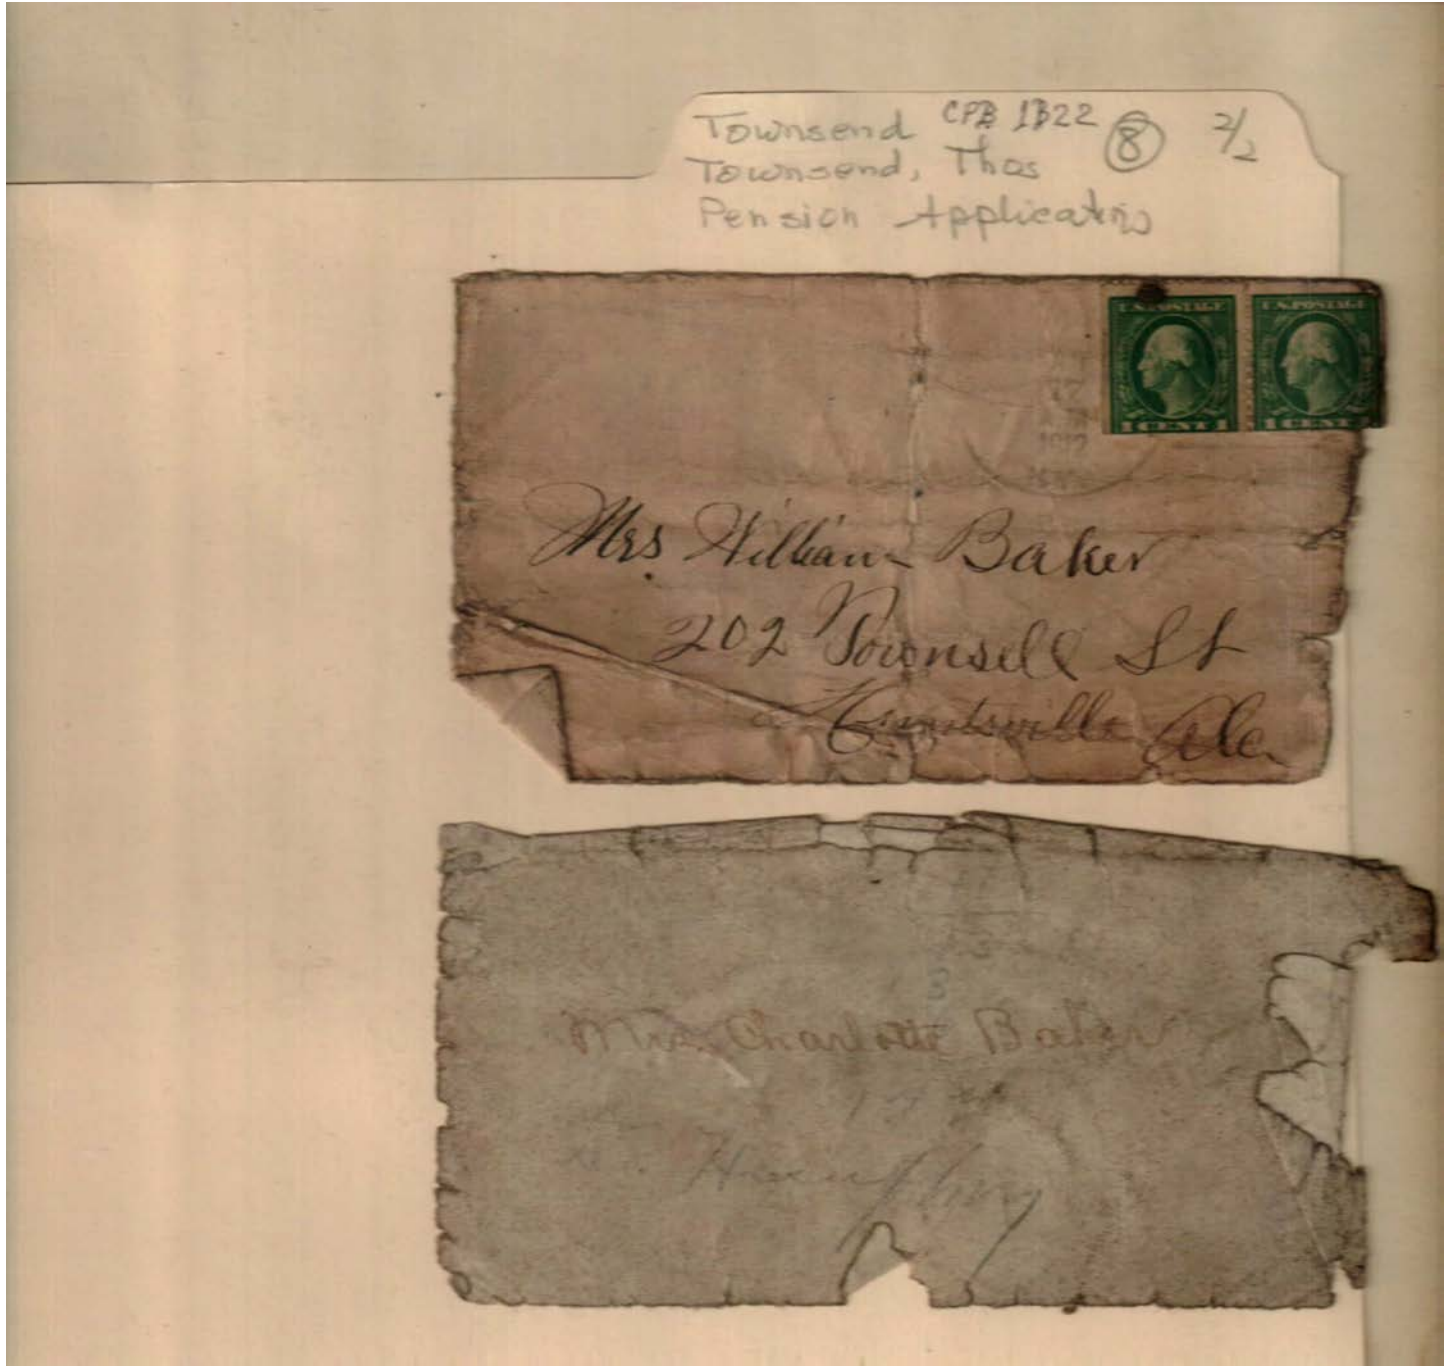 Townsend CPB 1B22 8 2/2
Townsend, Thos
Pension Application
U.S. POSTAGE U.S. POSTAGE
1 CENT 1 1 CENT
Mrs William Baker
202 Townsell St
Huntsville Ala
Mrs. Charlotte Baker